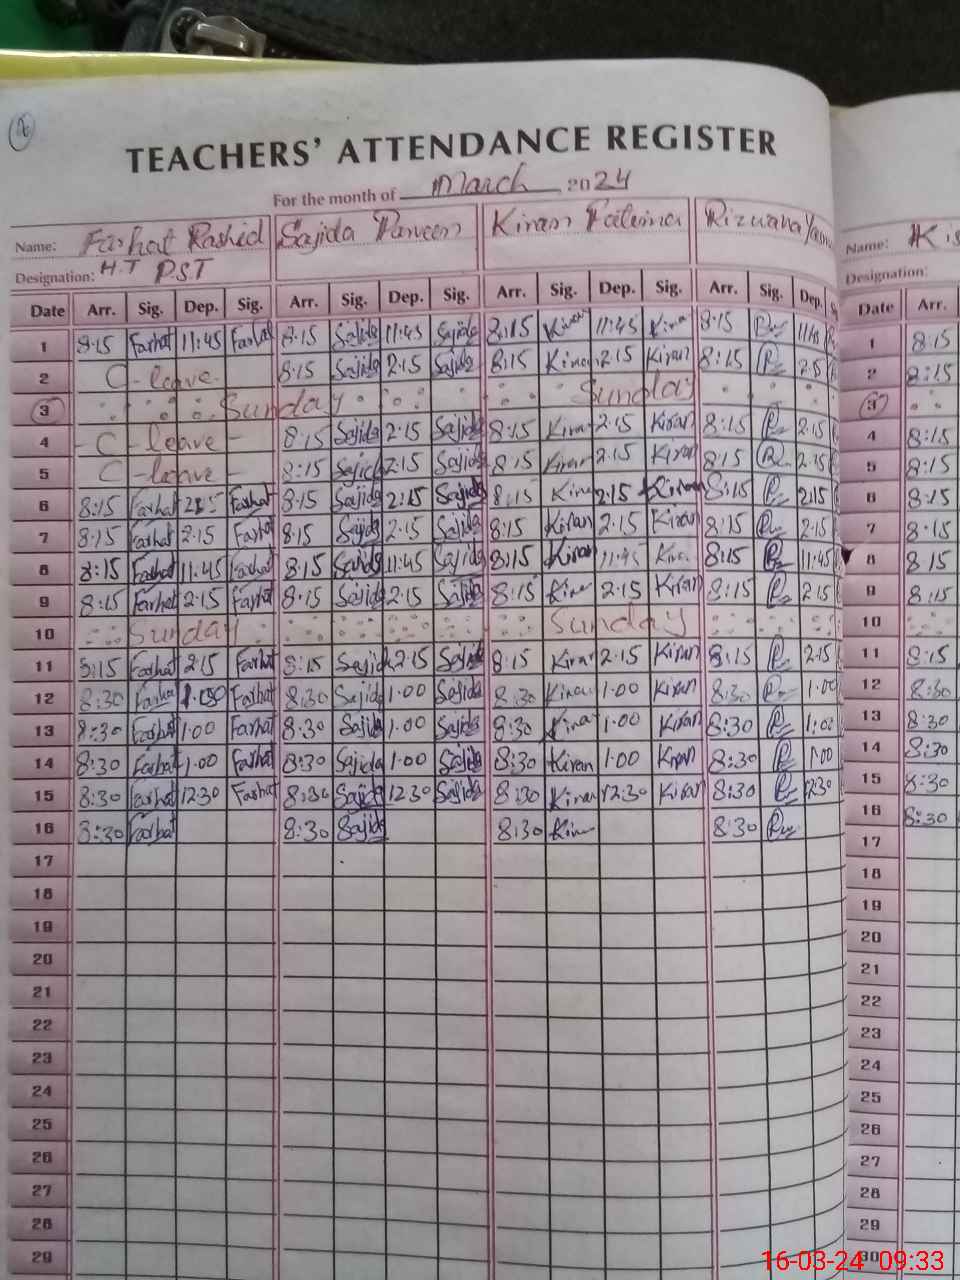 TEACHERS' ATTENDANCE REGISTER
For the month of March 2024
Name: Farhat Rashid Sajida Parveen Kiran Fatima Rizwana Name:
Designation: H.T P.S.T Designation:
Date Arr. Sig. Dep. Sig. Arr. Sig. Dep. Sig. Arr. Sig. Dep. Sig. Arr. Sig. Dep. Date Arr.
1 8:15 Farhat 11:45 Farhat 8:15 Sajida 11:45 Sajida 8:15 Kiran 11:45 Kiran 8:15 1 8:15
2 C-leave 8:15 Sajida 2:15 Sajida 8:15 Kiran 2:15 Kiran 8:15 2 8:15
3 Sunday Sunday 3
4 C-leave 8:15 Sajida 2:15 Sajida 8:15 Kiran 2:15 Kiran 8:15 2:15 4 8:15
5 C-leave 8:15 Sajida 2:15 Sajida 8:15 Kiran 2:15 Kiran 8:15 2:15 5 8:15
6 8:15 Farhat 2:15 Farhat 8:15 Sajida 2:15 Sajida 8:15 Kiran 2:15 Kiran 8:15 2:15 6 8:15
7 8:15 Farhat 2:15 Farhat 8:15 Sajida 2:15 Sajida 8:15 Kiran 2:15 Kiran 8:15 2:15 7 8:15
8 8:15 Farhat 11:45 Farhat 8:15 Sajida 11:45 Sajida 8:15 Kiran 11:45 Kiran 8:15 11:45 8 8:15
9 8:15 Farhat 2:15 Farhat 8:15 Sajida 2:15 Sajida 8:15 Kiran 2:15 Kiran 8:15 2:15 9 8:15
10 Sunday Sunday 10
11 8:15 Farhat 2:15 Farhat 8:15 Sajida 2:15 Sajida 8:15 Kiran 2:15 Kiran 8:15 2:15 11 8:15
12 8:30 Farhat 1:00 Farhat 8:30 Sajida 1:00 Sajida 8:30 Kiran 1:00 Kiran 8:30 1:00 12 8:30
13 8:30 Farhat 1:00 Farhat 8:30 Sajida 1:00 Sajida 8:30 Kiran 1:00 Kiran 8:30 1:00 13 8:30
14 8:30 Farhat 1:00 Farhat 8:30 Sajida 1:00 Sajida 8:30 Kiran 1:00 Kiran 8:30 1:00 14 8:30
15 8:30 Farhat 12:30 Farhat 8:30 Sajida 12:30 Sajida 8:30 Kiran 12:30 Kiran 8:30 12:30 15 8:30
16 8:30 Farhat 8:30 Sajida 8:30 Kiran 8:30 16 8:30
17 17
18 18
19 19
20 20
21 21
22 22
23 23
24 24
25 25
26 26
27 27
28 28
29 29
30
16-03-24 09:33